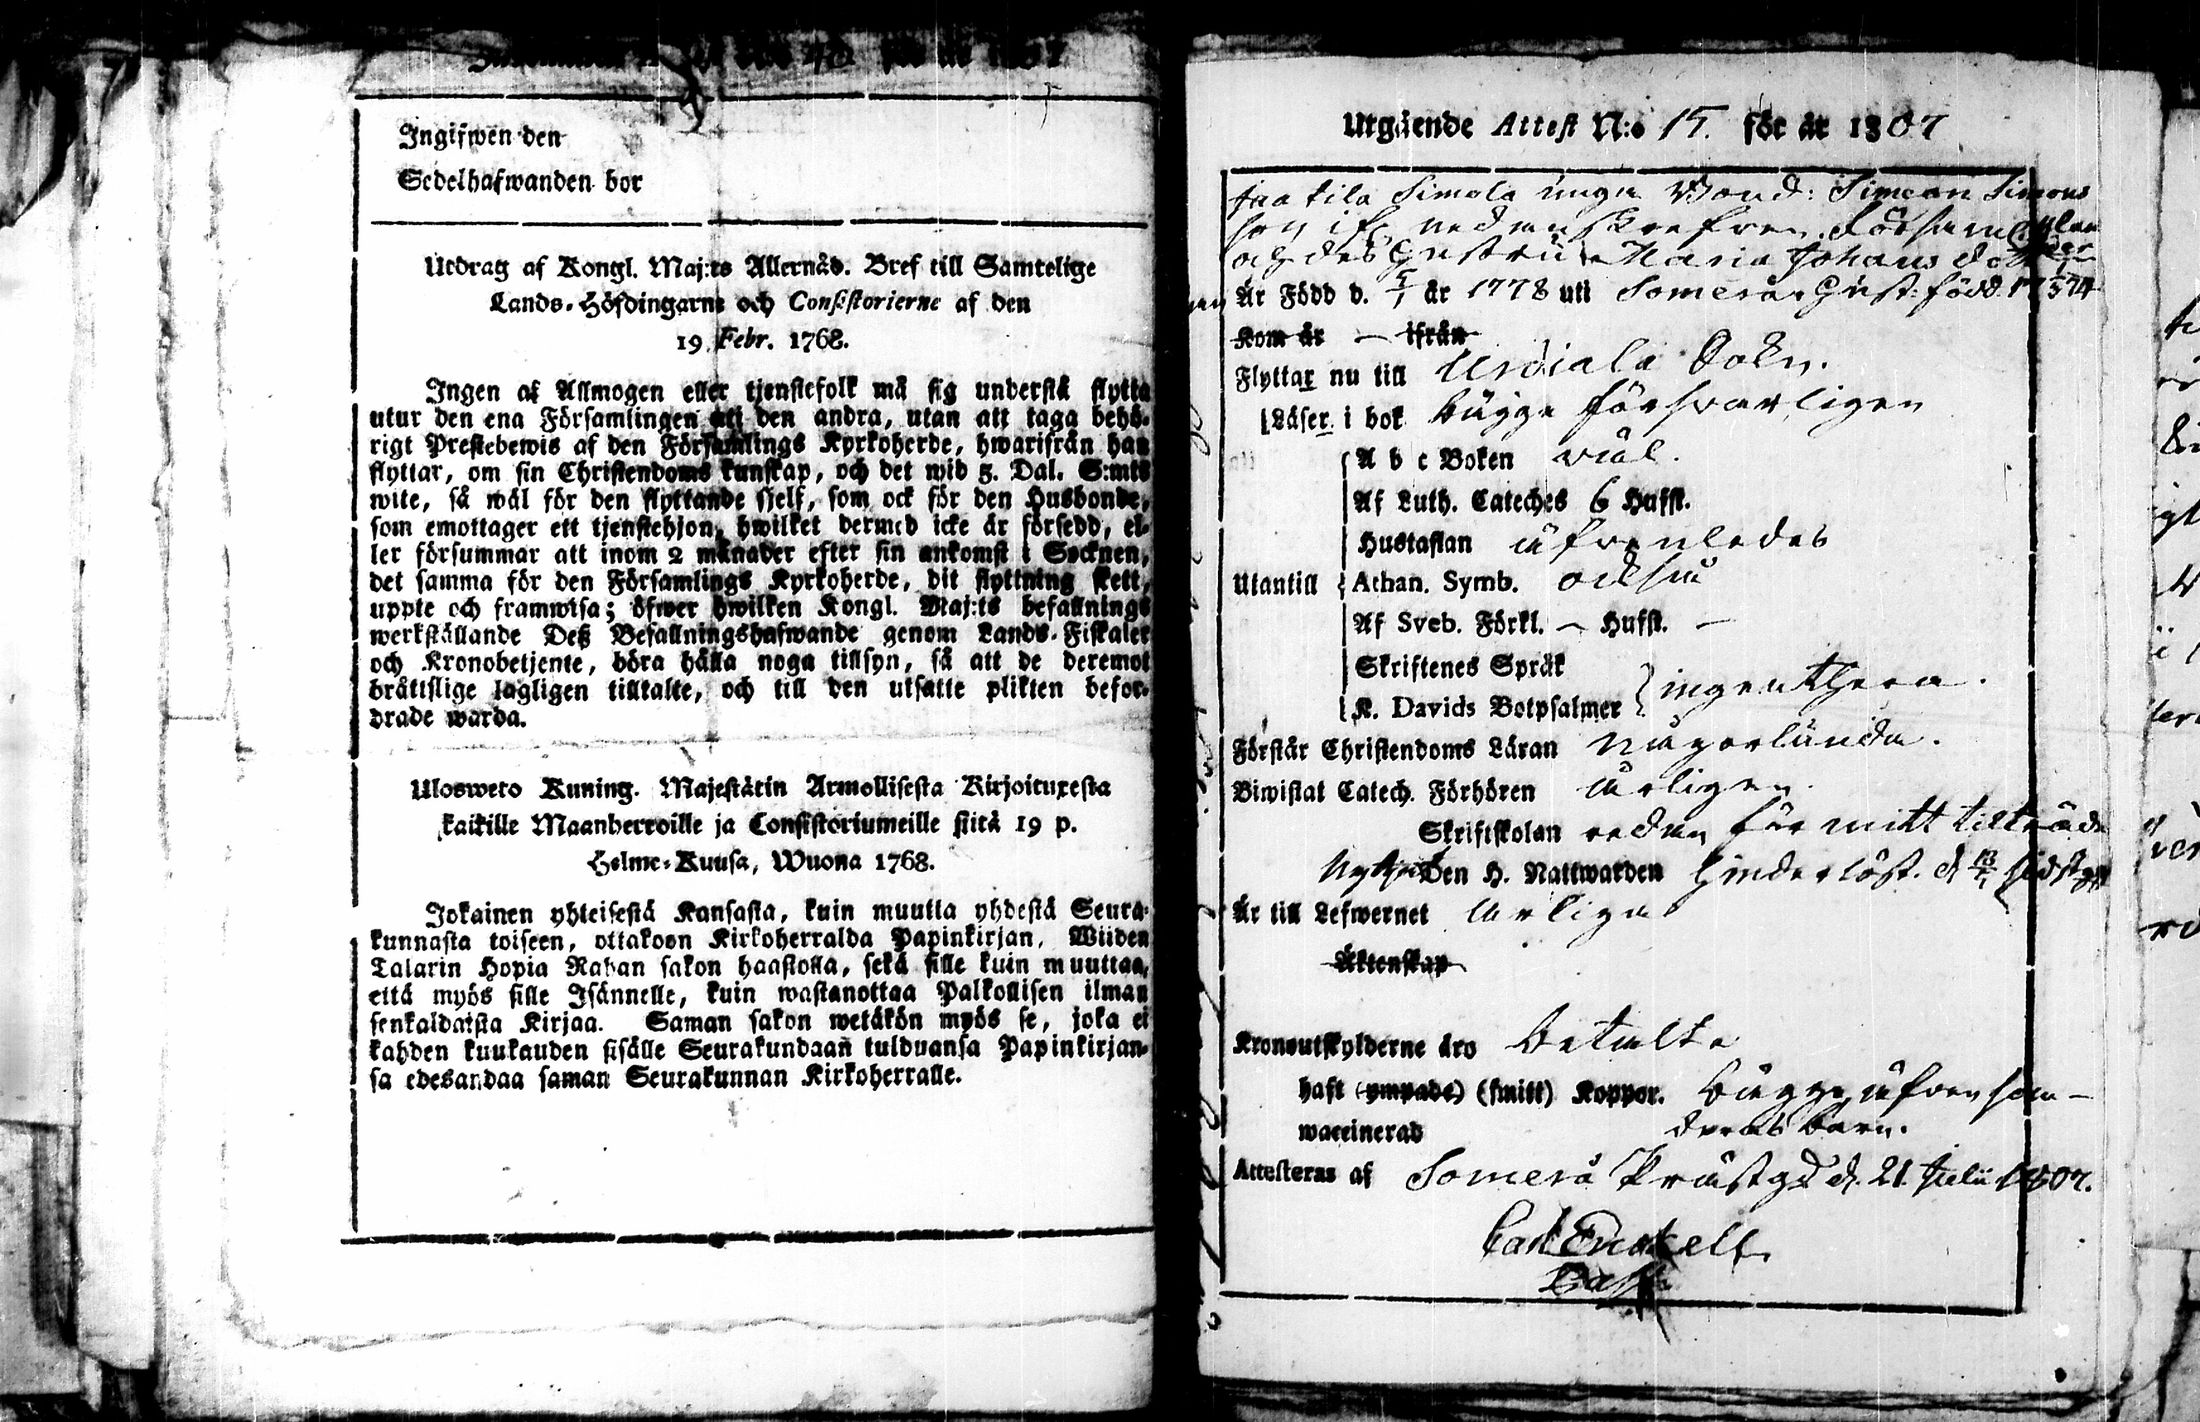 Ingifwen den
Sedelhafwanden bor
Utdrag af Kongl. Maj:ts Allernåd. Bref till Samtelige
Lands-Höfdingarne och Consistorierne af den
19. Febr. 1768.
Ingen af Allmogen eller tjenstefolk må sig understå flytta
utur den ena Församlingen uti den andra, utan att taga behö-
rigt Prestebewis af den Församlings Kyrkoherde, hwarifrån han
flyttar, om sin Christendoms kunskap, och det wid 5. Dal. S:mts
wite, så wäl för den flyttande sjelf, som ock för den Husbonde,
som emottager ett tjenstehjon, hwilket dermed icke är försedd, el-
ler försummar att inom 2 månader efter sin ankomst i Socknen,
det samma för den Församlings Kyrkoherde, dit flyttning skett,
uppte och framwisa; öfwer hwilken Kongl. Maj:ts befallnings
werkställande Deß Befallningshafwande genom Lands-Fiskaler
och Kronobetjente, böra hålla noga tillsyn, så att de deremot
bråttslige lagligen tilltalte, och till den utsatte plikten befor-
drade warda.
Ulosweto Kuning. Majestätin Armollisesta Kirjoituxesta
kaikille Maanherroille ja Consistoriumeille siitä 19 p.
Helme-Kuusa, Wuona 1768.
Jokainen yhteisestä Kansasta, kuin muutta yhdestä Seura-
kunnasta toiseen, ottakoon Kirkoherralda Papinkirjan, Wiiden
Talarin Hopia Rahan sakon haastolla, sekä sille kuin muuttaa,
että myös sille Isännelle, kuin wastanottaa Palkollisen ilman
senkaldaista Kirjaa. Saman sakon wetäkön myös se, joka ei
kahden kuukauden sisälle Seurakundaañ tulduansa Papinkirjan-
sa edesandaa saman Seurakunnan Kirkoherralle.
Utgående Attest N:o 15. för år 1807
Simola unga Bond: Simeon Simons
son if nedanskrefven Församlen
och des Gustru Maria Johans dotter
Är Född d. 5/1 år 1778 uti Somero. Gust: född 1774
Kom år — ifrån
Flyttar nu till Urdiala Sokn.
Läser i bok bägge försvarligen
A b c Boken väl.
Af Luth. Cateches 6 Hufst.
Hustaflan äfvenledes
Utantill Athan. Symb. också
Af Sveb. Förkl. — Hufst. —
Skriftenes Språk
K. Davids Botpsalmer ingenthera.
Förstår Christendoms Läran någorlunda.
Biwistat Catech. Förhören årligen.
Skriftskolan redan för mitt tilträde
Nyttjat Den H. Nattwarden hinderlöst. d.
Är till Lefwernet ärliga
Äktenskap
Kronoutskylderne äro betalte
haft (ympade) (smitt) Koppor. bägge äfven som
waccinerad deras barn.
Attesteras af Somero Prästgd d. 21 Julii 1807.
Carl Enckell
Past